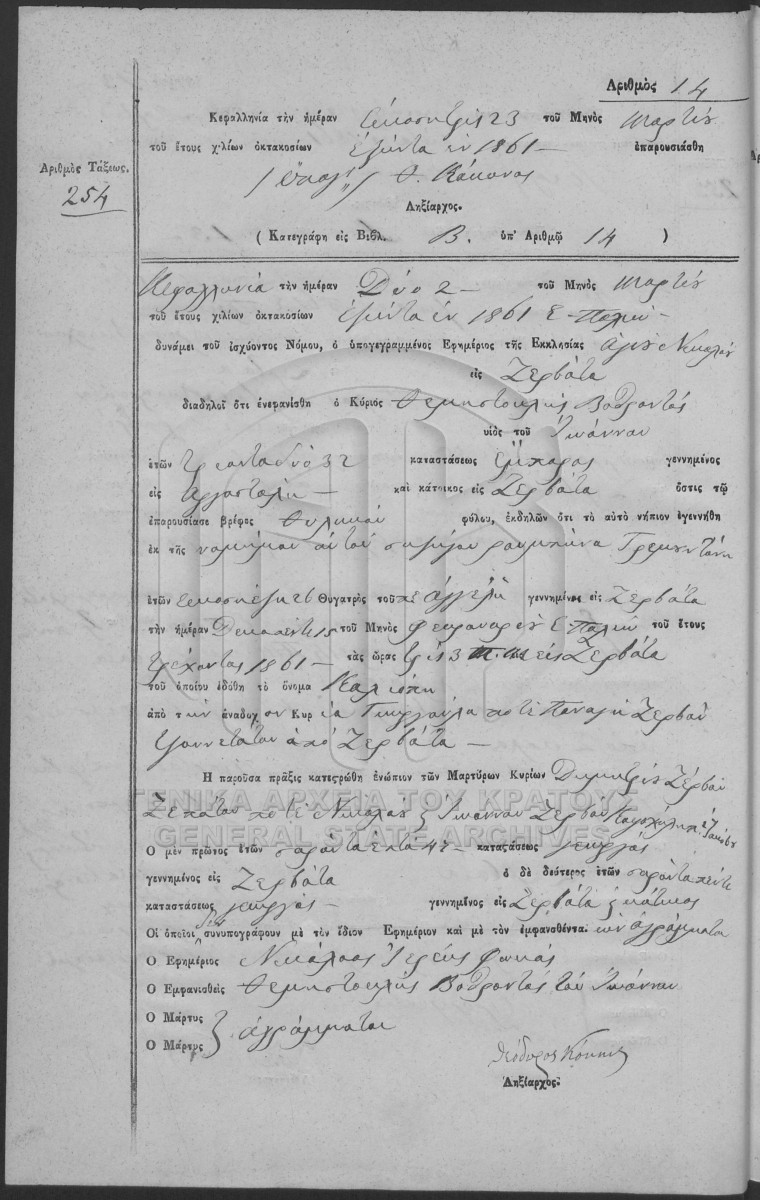 Ἀριθμὸς 14
Κεφαλληνία τὴν ἡμέραν Εἰκοσητρὶς 23 τοῦ Μηνὸς Μαρτίου
τοῦ ἔτους χιλίων ὀκτακοσίων ἑξῆντα ἓν 1861 — ἐπαρουσιάσθη
Ἀριθμὸς Τάξεως.
254
Θ. Κόκκινος
Ληξίαρχος.
( Κατεγράφη εἰς Βιβλ. Β. ὑπ' Ἀριθμῷ 14 )
Κεφαλληνία τὴν ἡμέραν Δύο 2 — τοῦ Μηνὸς Μαρτίου
τοῦ ἔτους χιλίων ὀκτακοσίων ἑξῆντα ἓν 1861 Ε. Παλαιὸν —
δυνάμει τοῦ ἰσχύοντος Νόμου, ὁ ὑπογεγραμμένος Ἐφημέριος τῆς Ἐκκλησίας Ἁγίου Νικολάου
εἰς Ζερβάτα
διαδηλοῖ ὅτι ἐνεφανίσθη ὁ Κύριος Θεμηστοκλῆς Βαλσαντὰς
υἱὸς τοῦ Ἰωάννου
ἐτῶν τριανταδύο 32 καταστάσεως ἔμπορος γεννημένος
εἰς Ἀργοστόλη — καὶ κάτοικος εἰς Ζερβάτα ὅστις τῷ
ἐπαρουσίασε βρέφος θυλικοῦ φύλου, ἐκδηλῶν ὅτι τὸ αὐτὸ νήπιον ἐγεννήθη
ἐκ τῆς νομήμου αὐτοῦ συζύγου
ἐτῶν εἰκοσηέξη 26 Θυγατρὸς τοῦ ποτὲ Ἀγγελῆ γεννημένος εἰς Ζερβάτα
τὴν ἡμέραν Δεκαπέντε 15 τοῦ Μηνὸς Φεβρουαρίου Ε. Παλαιὸν τοῦ ἔτους
τρέχοντος 1861 — τὰς ὥρας τρὶς 3 εἰς Ζερβάτα
τοῦ ὁποίου ἐδόθη τὸ ὄνομα Καλιόπη
ἀπὸ τὴν ἀναδοχον Κυρία Γιωργούλα ποτὲ Παναγῆ Ζερβοῦ
ἀπὸ Ζερβάτα —
Ἡ παροῦσα πρᾶξις κατεστρώθη ἐνώπιον τῶν Μαρτύρων Κυρίων Δημητρίου Ζερβοῦ
ποτὲ Νικολάου & Ἰωάννου Ζερβοῦ
Ὁ μὲν πρῶτος ἐτῶν σαράντα ἑπτὰ 47 — καταστάσεως γεωργὸς
γεννημένος εἰς Ζερβάτα ὁ δὲ δεύτερος ἐτῶν σαράντα πέντε
καταστάσεως γεωργὸς — γεννημένος εἰς Ζερβάτα & κάτικος
Οἱ ὁποῖοι δὲν συνυπογράφουν μὲ τὸν ἴδιον Ἐφημέριον καὶ μὲ τὸν ἐμφανισθέντα. ὡς ἀγράμματοι
Ὁ Ἐφημέριος Νικόλαος Ἱερεὺς Φωκᾶς
Ὁ Ἐμφανισθεὶς Θεμηστοκλῆς Βαλσαντὰς τοῦ Ἰωάννου
Ὁ Μάρτυς
Ὁ Μάρτυς } ἀγράμματοι
Θεόδωρος Κόκκινος
Ληξίαρχος.
ΓΕΝΙΚΑ ΑΡΧΕΙΑ ΤΟΥ ΚΡΑΤΟΥΣ
GENERAL STATE ARCHIVES